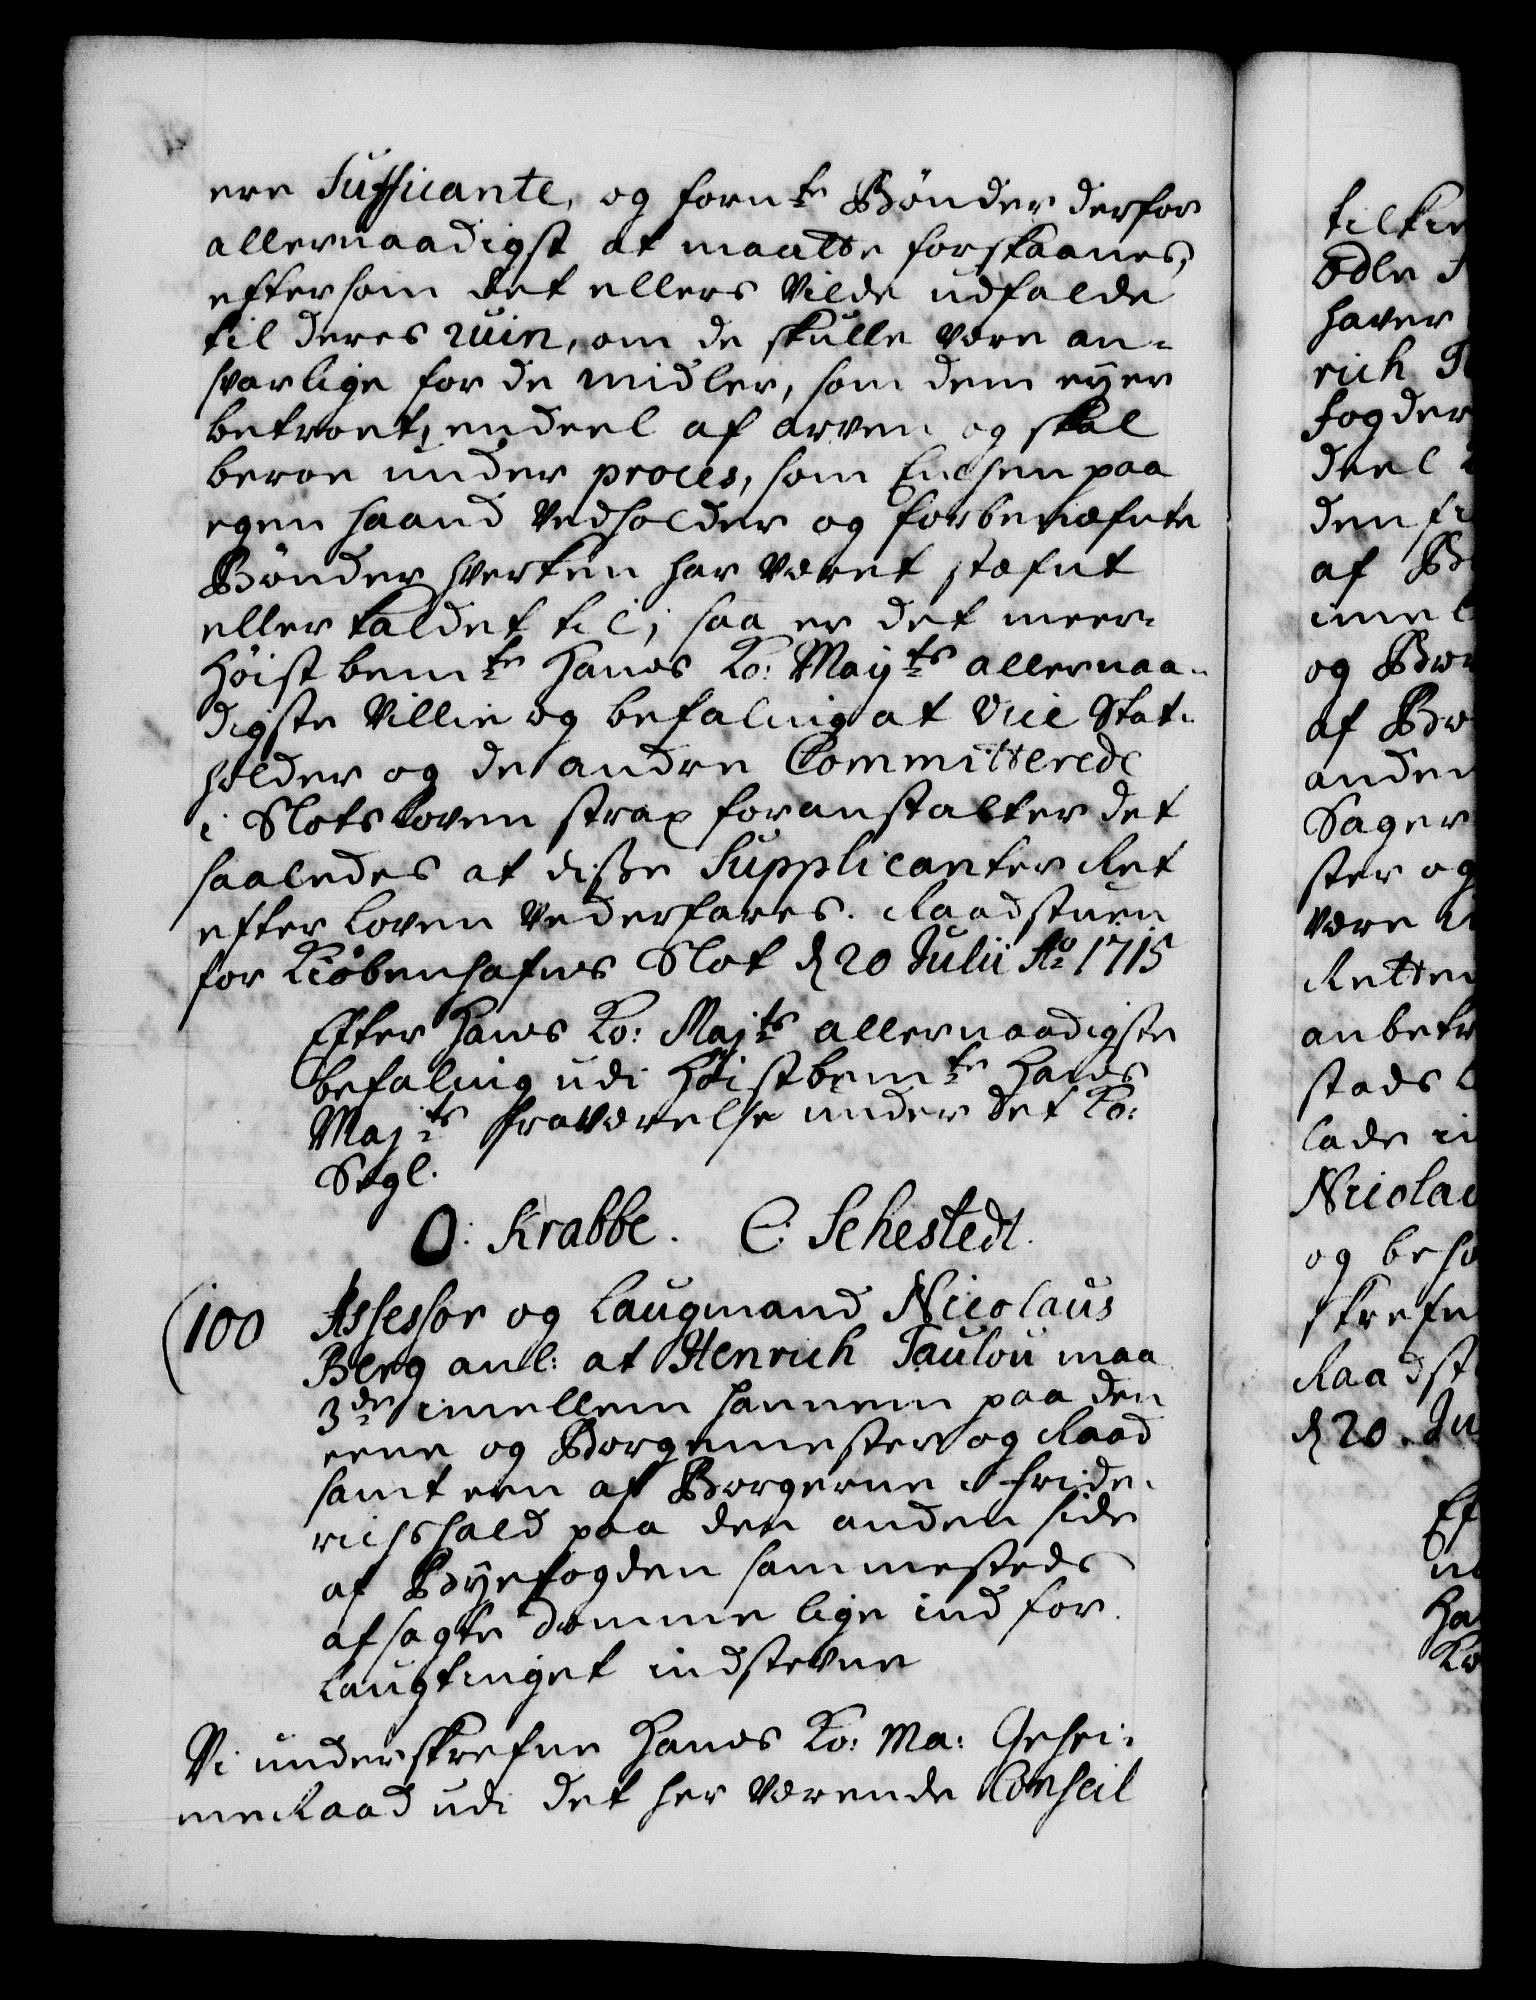 ere Sufficante, og fornte Bønder derfor
allernaadigst at maatte forskaanes,
eftersom det ellers Vilde udfalde
til deres ruin, om de skulle være an-
svarlige for de midler, som dem eyer
betroet, endeel af arven og skal
beroe under proces, som Enchen paa
egen haand Vedholder og forbenæfnte
Bønder hverken har været stæfnt
eller kaldet til; saa er det meer-
Høist bemte Hans Ko: Mayts allernaa-
digste Villie og befaling at Vice Stat-
holder og de andre Committerede
i Slotsloven strax foranstalter det
saaledes at disse Supplicanter Ret
efter Loven Vederfares. Raadstuen
for Kiøbenhafns Slot d 20 Julii Ao 1715
Efter Hans Ko: Majts allernaadigste
befaling udi Høistbemte Hands
Majts fraværelse under det Ko:
Segl.
O: Krabbe. C: Sehestedt.
(100 Assessor og Laugmand Nicolaus
Berg anl: at Henrich Taulou maa
3de imellem hannem paa den
eene og Borgemester og Raad
samt een af Borgerne i Fride-
richshald paa den anden side
af Byefogden sammesteds
afsagte domme lige ind for
Laugtinget indstevne
Vi underskrefne Hans Ko: Ma: Gehei-
meRaad udi det her værende Conseil
tilkie
Odle
haver
rich
fogder
deel
den
af
imel
og
af
anden
Sager
ster og
være
Retten
anbetr
stads
lade
Nicolau
og beho
skrefn
Raadst
d 20. Ju
Ef
Ha
Ko